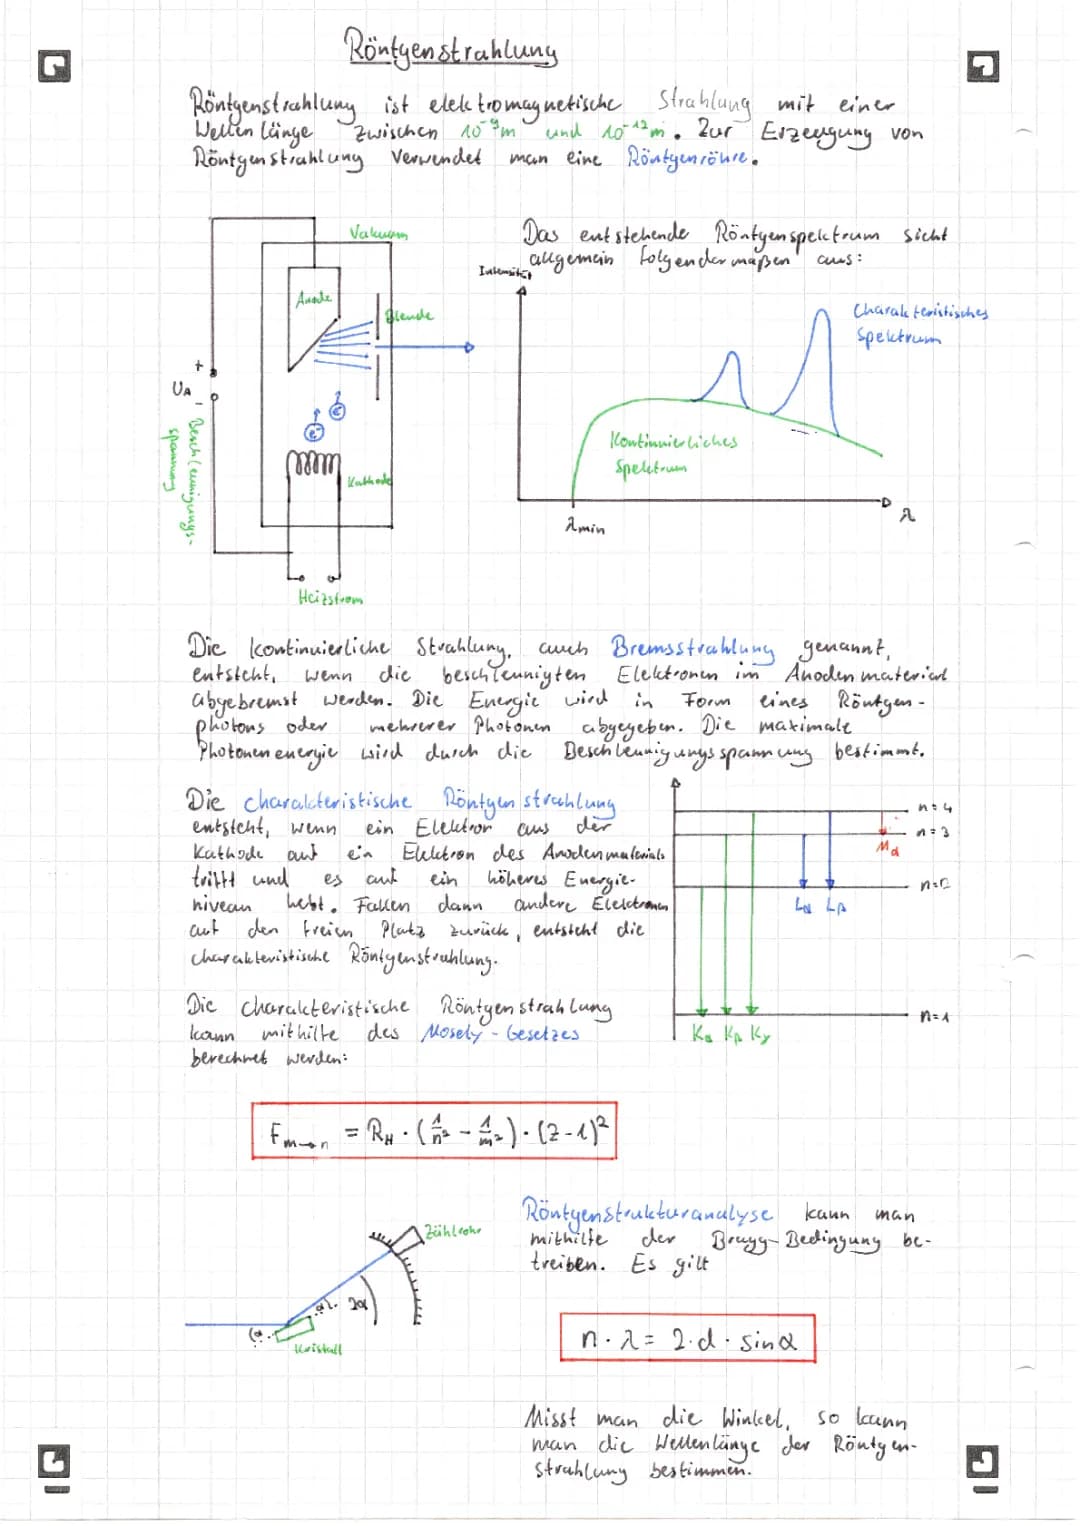 Röntgenstrahlung
Röntgenstrahlung ist elektromagnetische Strahlung mit einer
Wellenlänge zwischen 10⁻⁹m und 10⁻¹²m. Zur Erzeugung von
Röntgenstrahlung verwendet man eine Röntgenröhre.
Vakuum
Anode
Blende
+
U_A
-
Beschleunigungs-
spannung
e⁻
e⁻
Kathode
Heizstrom
Das entstehende Röntgenspektrum sieht
allgemein folgendermaßen aus:
Intensität
Charakteristisches
Spektrum
Kontinuierliches
Spektrum
λmin
λ
Die kontinuierliche Strahlung, auch Bremsstrahlung genannt,
entsteht, wenn die beschleunigten Elektronen im Anodenmaterial
abgebremst werden. Die Energie wird in Form eines Röntgen-
photons oder mehrerer Photonen abgegeben. Die maximale
Photonenenergie wird durch die Beschleunigungsspannung bestimmt.
Die charakteristische Röntgenstrahlung
entsteht, wenn ein Elektron aus der
Kathode auf ein Elektron des Anodenmaterials
trifft und es auf ein höheres Energie-
niveau hebt. Fallen dann andere Elektronen
auf den freien Platz zurück, entsteht die
charakteristische Röntgenstrahlung.
n=4
n=3
Mα
n=2
Lα Lβ
n=1
Kα Kβ Kγ
Die charakteristische Röntgenstrahlung
kann mithilfe des Mosely-Gesetzes
berechnet werden:
F_m→n = R_H · (1/n² - 1/m²) · (Z-1)²
Zählrohr
α
α
2α
Kristall
Röntgenstrukturanalyse kann man
mithilfe der Bragg-Bedingung be-
treiben. Es gilt
n · λ = 2 · d · sin α
Misst man die Winkel, so kann
man die Wellenlänge der Röntgen-
strahlung bestimmen.